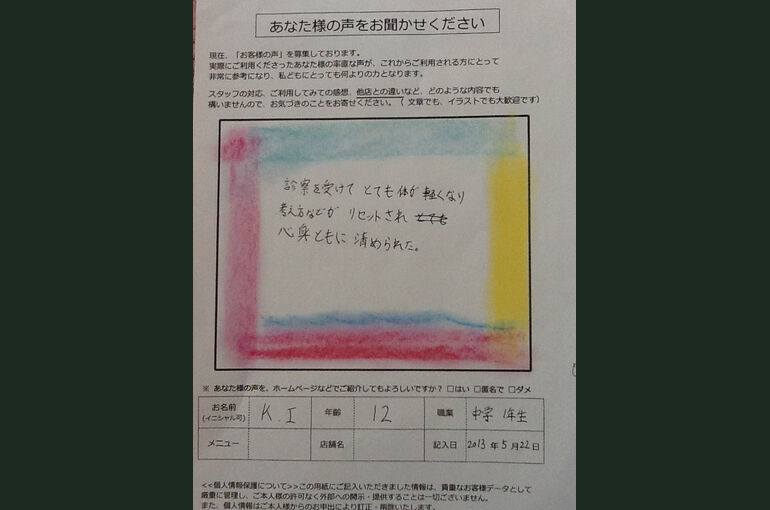 あなた様の声をお聞かせください
現在、「お客様の声」を募集しております。
実際にご利用くださったあなた様の率直な声が、これからご利用される方にとって
非常に参考になり、私どもにとっても何よりの力となります。
スタッフの対応、ご利用してみての感想、他店との違いなど、どのような内容でも
構いませんので、お気づきのことをお寄せください。（ 文章でも、イラストでも大歓迎です）
診察を受けて とても体が 軽くなり
考え方などが リセットされ とても
心身ともに 清められた。
※ あなた様の声を、ホームページなどでご紹介してもよろしいですか？ □はい □匿名で □ダメ
お名前 (イニシャル可) K.I 年齢 12 職業 中学 1年生
メニュー 店舗名 記入日 2013 年 5 月 22 日
<<個人情報保護について>> この用紙にご記入いただきました情報は、貴重なお客様データとして
厳重に管理し、ご本人様の許可なく外部への開示・提供することは一切ございません。
また、個人情報はご本人様からのお申出により訂正・削除いたします。